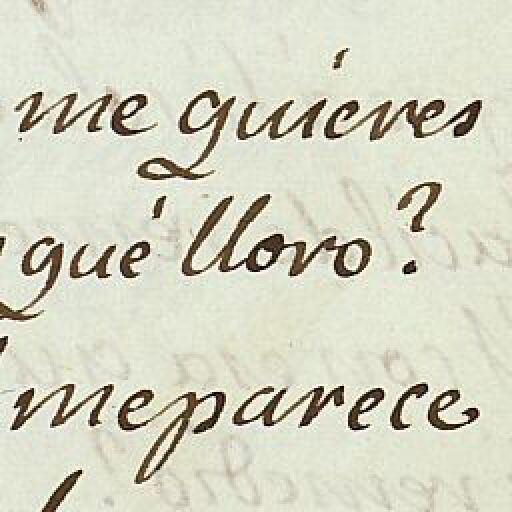 me quieres
qué lloro?
me parece